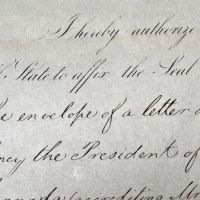 I hereby authorize
State to affix the Seal
envelope of a letter
the President of